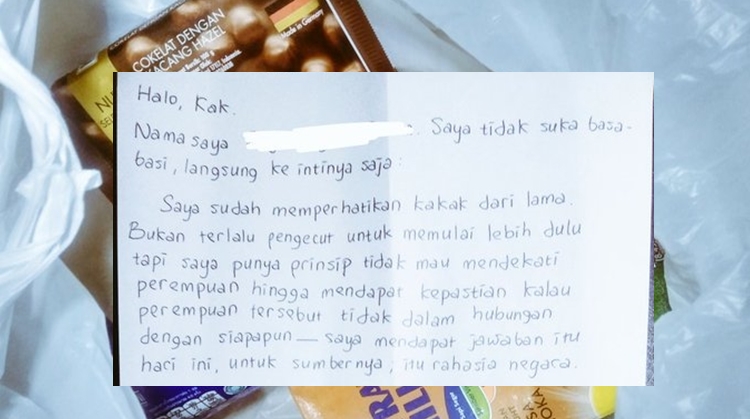 COKELAT DENGAN
KACANG HAZEL
Made in Germany
Halo, Kak.
Nama saya . Saya tidak suka basa-
basi, langsung ke intinya saja:
Saya sudah memperhatikan kakak dari lama.
Bukan terlalu pengecut untuk memulai lebih dulu
tapi saya punya prinsip tidak mau mendekati
perempuan hingga mendapat kepastian kalau
perempuan tersebut tidak dalam hubungan
dengan siapapun — saya mendapat jawaban itu
hari ini, untuk sumbernya, itu rahasia negara.